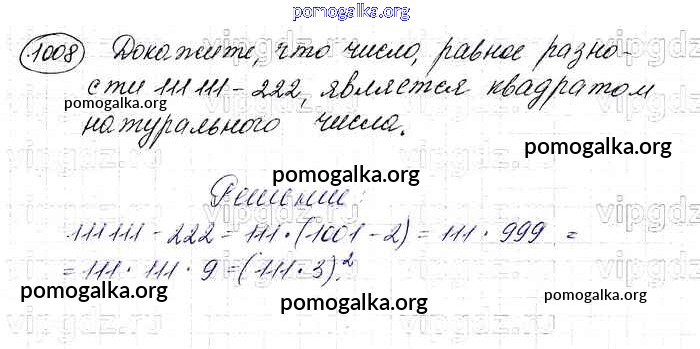 pomogalka.org
1008 Докажите, что число, равное разно-
сти 111 111 - 222, является квадратом
pomogalka.org
натурального числа.
pomogalka.org
vipgdz.ru
Решение:
pomogalka.org
vipgdz.ru
111 111 - 222 = 111 · (1001 - 2) = 111 · 999 =
= 111 · 111 · 9 = (111 · 3)².
pomogalka.org
pomogalka.org
pomogalka.org